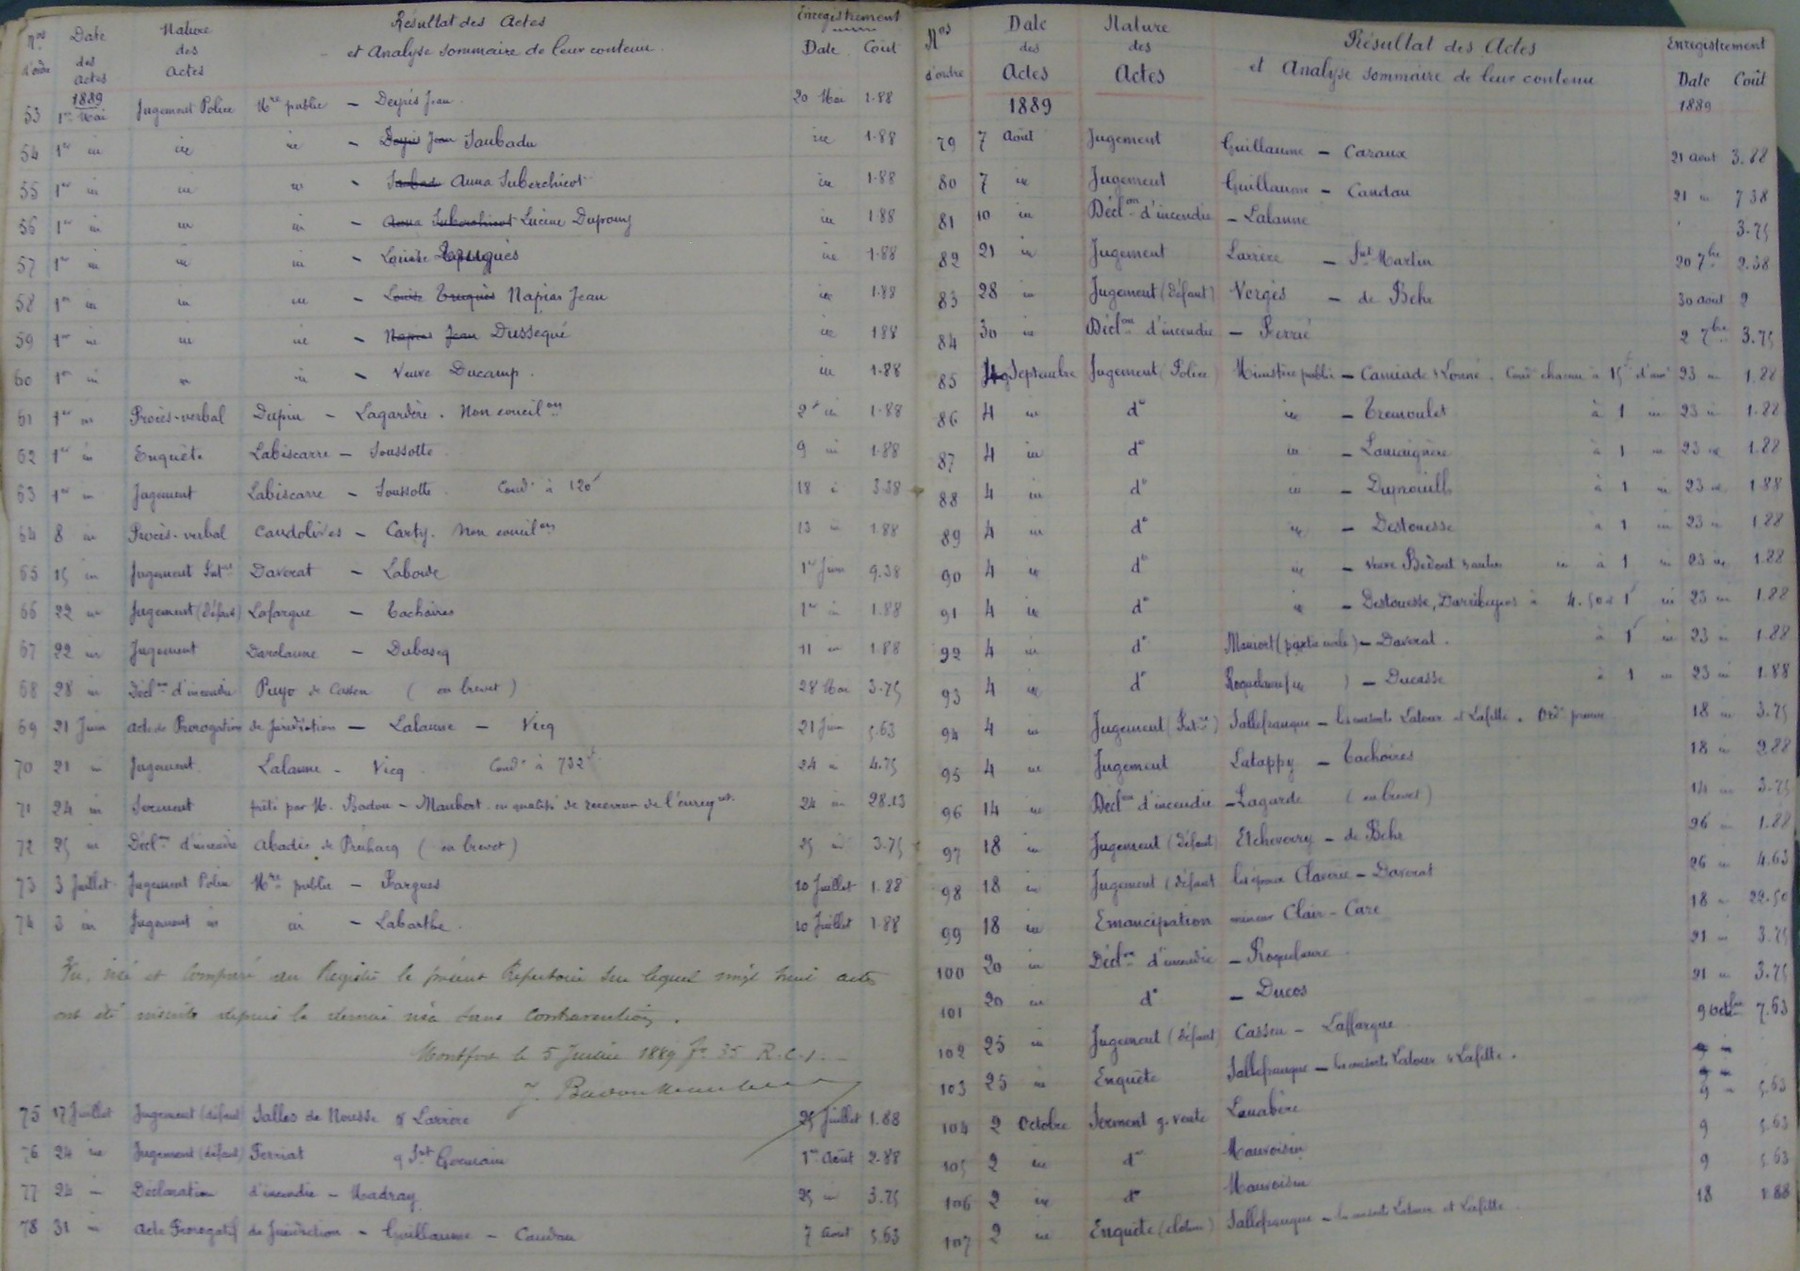 Nos d'ordre Date des Actes Nature des Actes Résultat des Actes et Analyse sommaire de leur contenu Enregistrement Date Coût
1889
53 1er Mai Jugement Police Mre public – Deyris Jean 20 Mai 1.88
54 1er in in in – Jaubadu in 1.88
55 1er in in in – Anna Suberchicot in 1.88
56 1er in in in – Lucine Dupouy in 1.88
57 1er in in in – Louise in 1.88
58 1er in in in – Napias Jean in 1.88
59 1er in in in – Dussequé in 1.88
60 1er in in in – Veuve Ducamp. in 1.88
61 1er in Procès-verbal Dupin – Lagardère. Non concilon 2 in 1.88
62 1er in Enquête Labiscarre – Soussotte 9 in 1.88
63 1er in Jugement Labiscarre – Soussotte Cond. à 120f 18 in 3.38
64 8 in Procès-verbal Caudolives – Carty. Non concilon 13 in 1.88
65 15 in Jugement Davorat – Laborde 1er Juin 9.38
66 22 in Jugement (défaut) Lafargue – Tachoires 1er in 1.88
67 22 in Jugement Darolaune – Dubascq 11 in 1.88
68 28 in Déclon d'incendie Puyo de Cassen (en brevet) 28 Mai 3.75
69 21 Juin acte de Prorogation de Juridiction – Lalanne – Vicq 21 Juin 5.63
70 21 in Jugement Lalanne – Vicq Cond. à 732f 24 in 4.75
71 24 in Serment prêté par M. Badou-Maubert en qualité de receveur de l'enregt. 24 in 28.13
72 25 in Déclon d'incendie Abadie de Préchacq (en brevet) 25 in 3.75
73 3 Juillet Jugement Police Mre public – Fargues 10 Juillet 1.88
74 3 in Jugement in in – Labarthe. 10 Juillet 1.88
Vu, et comparé au Registre le présent Répertoire sur lequel vingt huit actes
ont été inscrits depuis le dernier visa sans contravention.
Montfort le 5 Juillet 1889 fo 35 R.C.
75 17 Juillet Jugement (défaut) Salles de Nousse & Larrère 25 Juillet 1.88
76 24 in Jugement (défaut) Ferriat & St Germain 1er Août 2.88
77 24 – Déclaration d'incendie – Madray 25 in 3.75
78 31 – Acte Prorogatif de Juridiction – Guillaume – Caudau 7 Août 5.63
Nos d'ordre Date des Actes Nature des Actes Résultat des Actes et Analyse sommaire de leur contenu Enregistrement Date Coût
1889 1889
79 7 Août Jugement Guillaume – Cazaux 21 Août 3.88
80 7 in Jugement Guillaume – Caudau 21 in 7.38
81 10 in Déclon d'incendie – Lalanne 3.75
82 21 in Jugement Larrère – St Martin 20 7bre 2.38
83 28 in Jugement (défaut) Vergès – de Behr 30 Août 2
84 30 in Déclon d'incendie – Ferrié 2 7bre 3.75
85 4 Septembre Jugement (Police) Ministère public – Camiade & Lonné. Cond. chacun à 15f d'am. 23 in 1.88
86 4 in do in – Tremoulet à 1 in 23 in 1.88
87 4 in do in – Lamaignère à 1 in 23 in 1.88
88 4 in do in – Dupouill à 1 in 23 in 1.88
89 4 in do in – Destouesse à 1 in 23 in 1.88
90 4 in do in – Veuve Bédout & autres in à 1 in 23 in 1.88
91 4 in do in – Destouesse, à 4.50 & 1f in 23 in 1.88
92 4 in do (partie civile) – Davorat. à 1f in 23 in 1.88
93 4 in do Roquelaure (in) – Ducasse à 1 in 23 in 1.88
94 4 in Jugement Sallefranque – les consorts Latour et Lafitte. 18 in 3.75
95 4 in Jugement Latappy – Tachoires 18 in 2.88
96 14 in Déclon d'incendie – Lagarde (en brevet) 14 in 3.75
97 18 in Jugement (défaut) Etcheverry – de Behr 26 in 1.88
98 18 in Jugement (défaut les époux Claverie – Davorat 26 in 4.63
99 18 in Emancipation mineur Clair-Care 18 in 22.50
100 20 in Déclon d'incendie – Roquelaure 21 in 3.75
101 20 in do – Ducos 21 in 3.75
102 25 in Jugement (défaut) Cassen – Laffargue 9 Octbre 7.63
103 25 in Enquête Sallefranque – les consorts Latour & Lafitte.
104 2 Octobre Serment g. vente Lanabère 9 – 5.63
105 2 in do Mauvoisin 9 5.63
106 2 in do Mauvoisin 9 5.63
107 2 in Enquête (clôture) Sallefranque – les consorts Latour et Lafitte 18 1.88